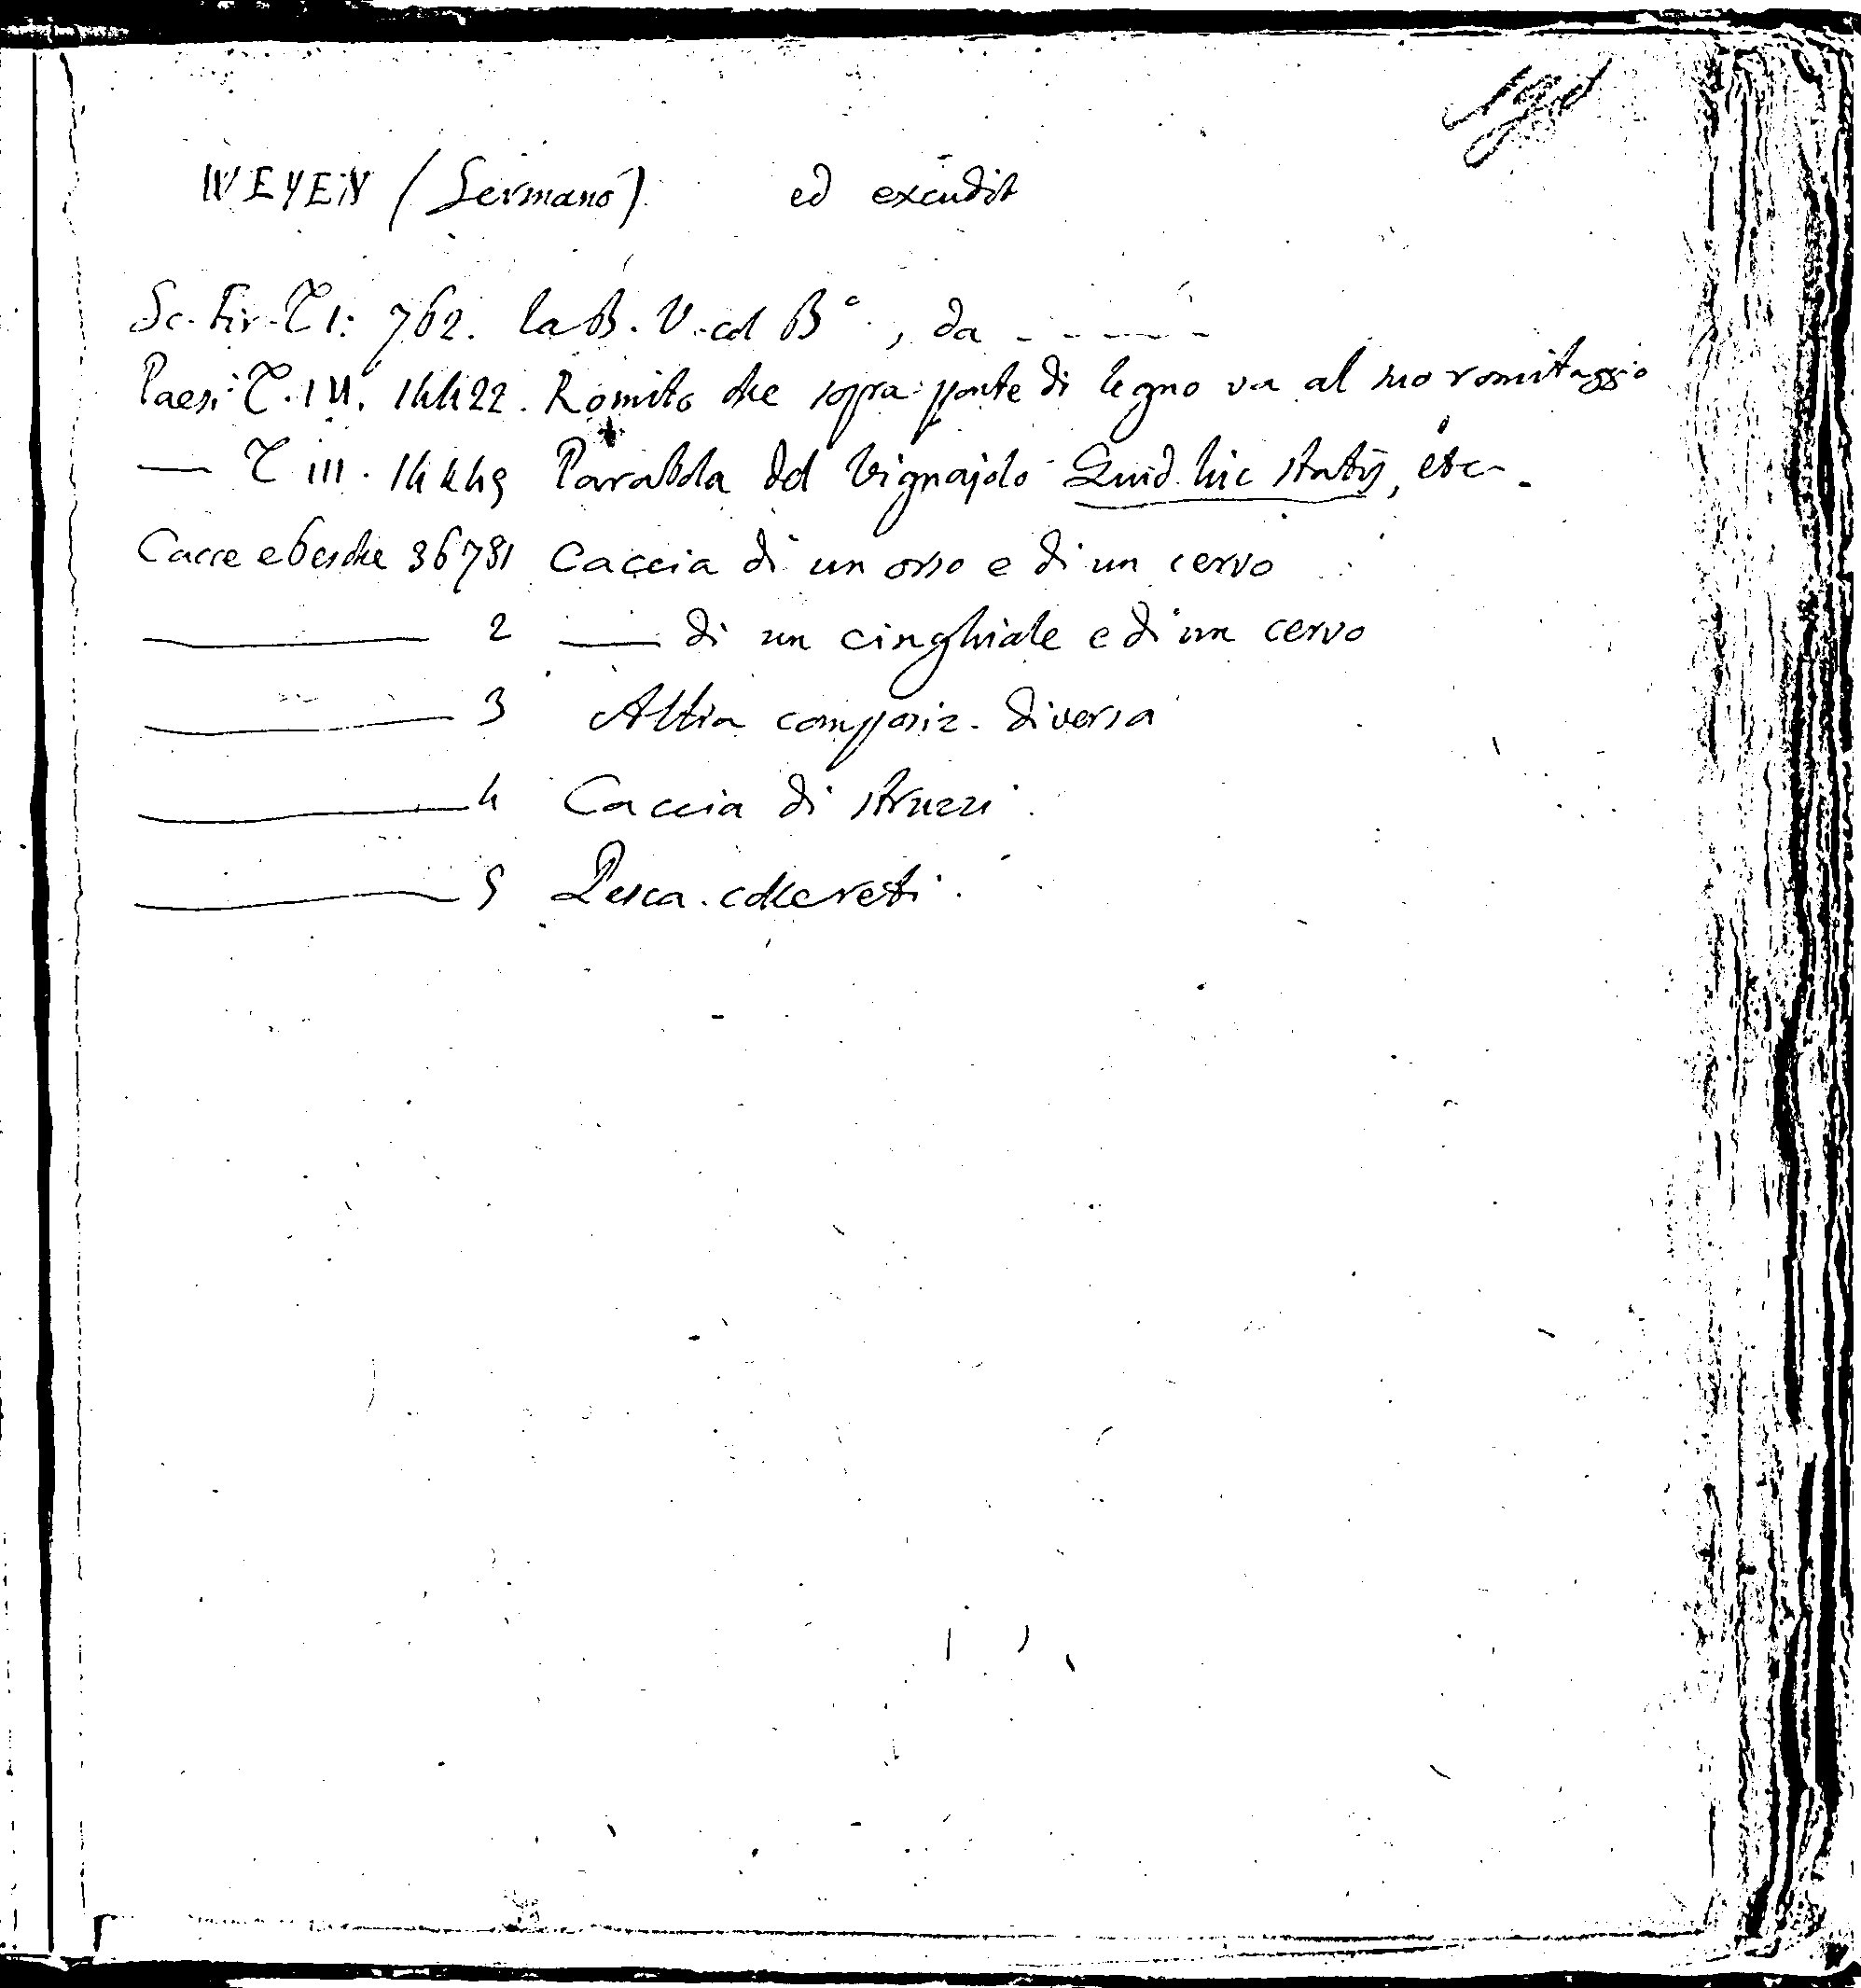 WEYEN (Germano) ed excudit
Sc. Fir. T I: 762. la B. V. col B°., da - - - - -
Paesi T. IV. 14422. Romito che sopra ponte di legno va al suo romitaggio
— T III. 14449 Parabola del Vignajolo Quid hic statis, etc.
Cacce e Pesche 36781 Caccia di un orso e di un cervo
— 2 — di un cinghiale e di un cervo
— 3 Altra composiz. diversa
— 4 Caccia di struzzi
— 5 Pesca colle reti.